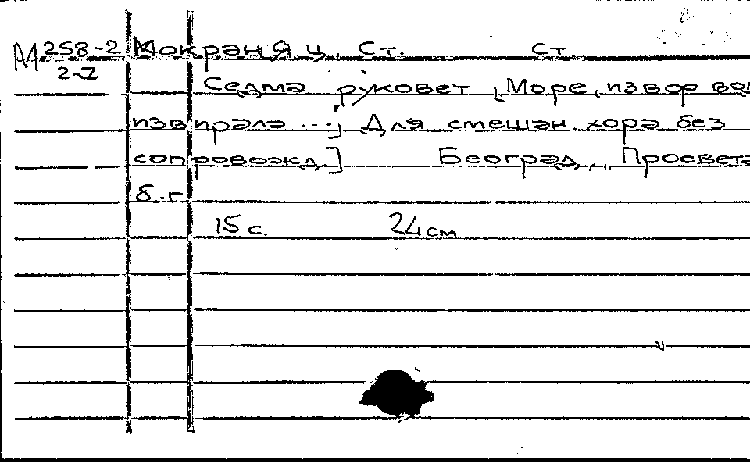 М 258-2 Мокраняц, Ст. Ст
2-I
Седма руковет [Море, извор вода
извирала ...; Для смешан. хора без
сопровожд.] Београд, Просвета
б.г.
15 с. 24 см